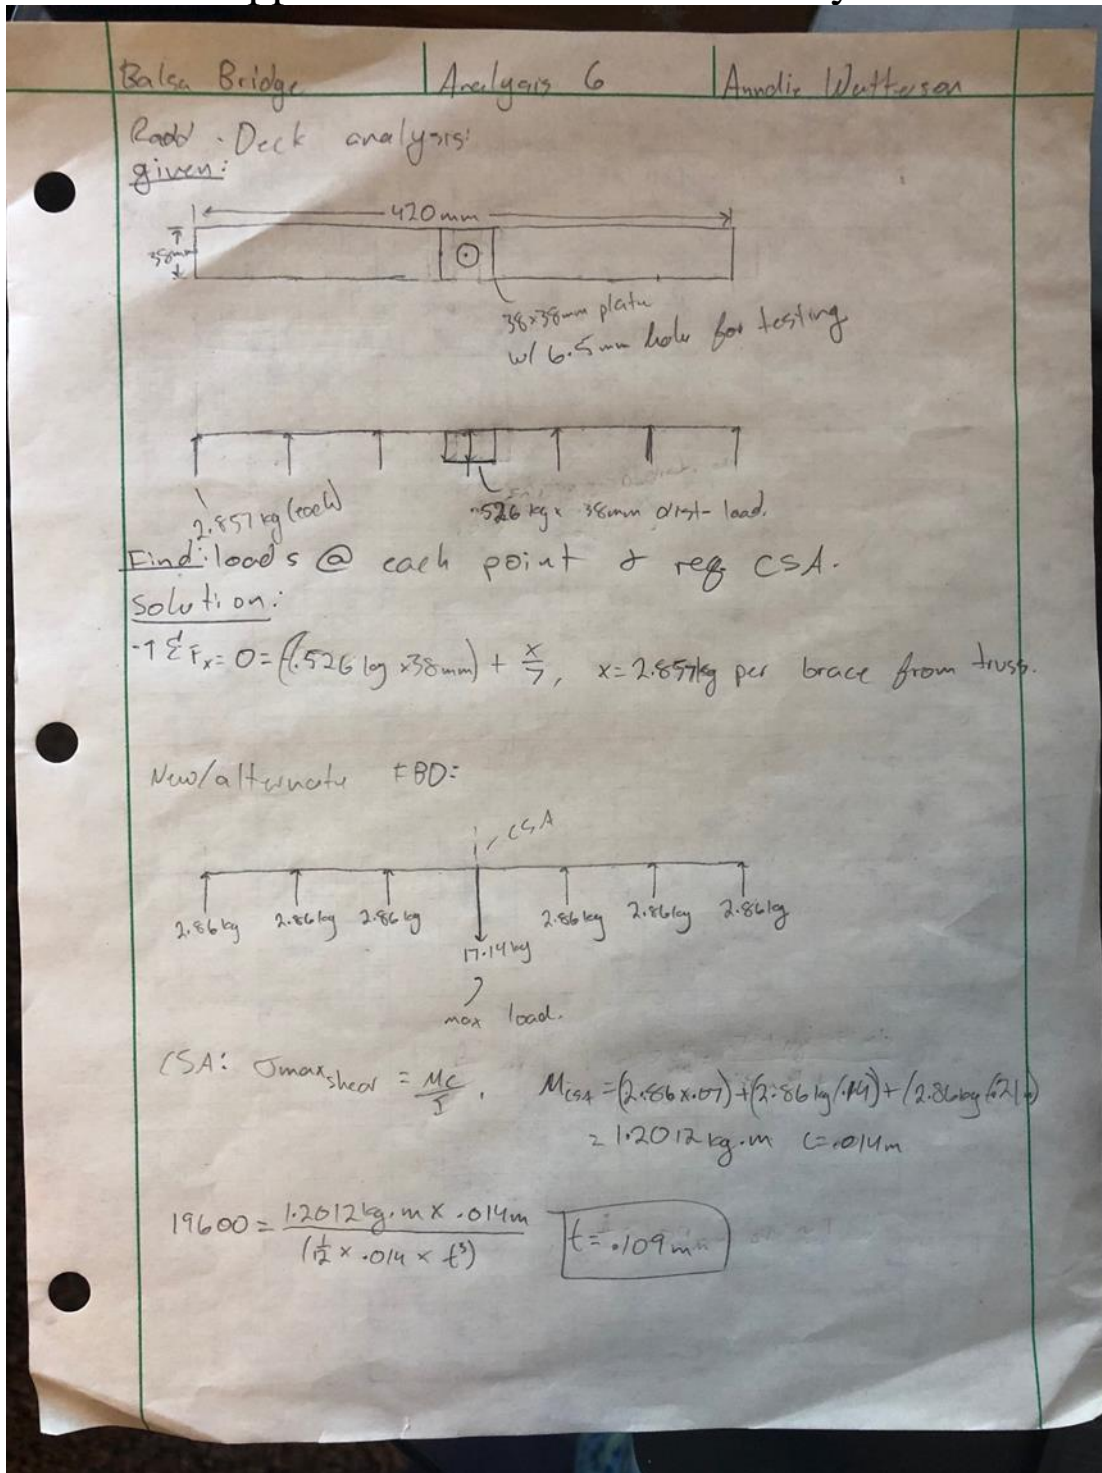 Balsa Bridge Analysis 6 Anndie Wutterson
Road Deck analysis:
given:
420mm
38mm
38x38mm plate
w/ 6.5mm hole for testing
2.857 kg (each)
.526 kg x 38mm dist- load.
Find: loads @ each point & req. CSA.
Solution:
x= 2.857kg per brace from truss.
New/alternate FBD:
CSA
2.86kg 2.86kg 2.86kg 2.86kg 2.86kg 2.86kg
17.14kg
max load.
CSA: σmax shear = Mc/I. M CSA = (2.86x.07)+(2.86kg(.14)+(2.86kg(.21))
= 1.2012 kg.m C=.014m
19600 = 1.2012kg.m x .014m / (1/12 x .014 x t³) t= .109m